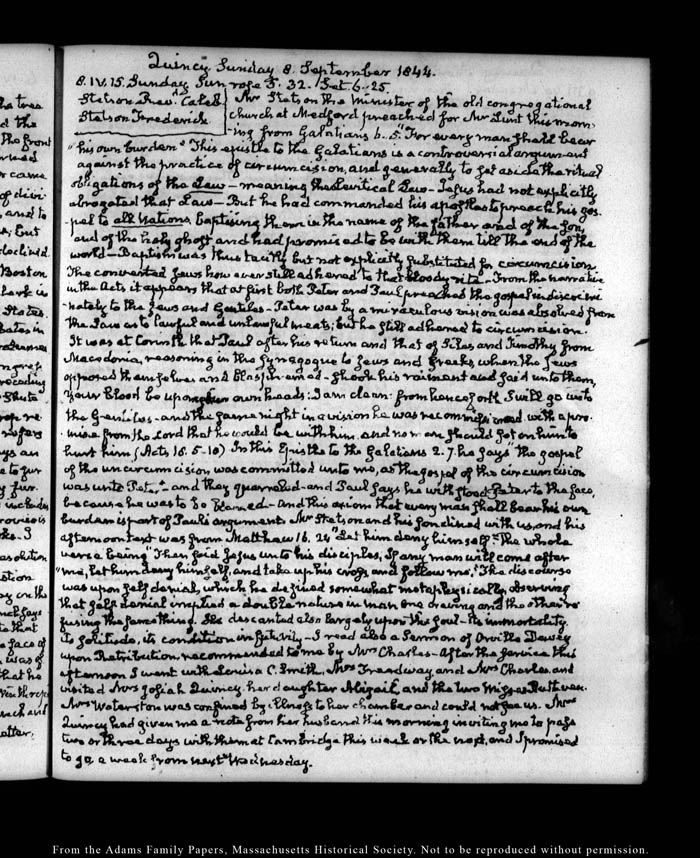 Quincy Sunday 8. September 1844.
8. IV. 15. Sunday Sun rose 5. 32. Set 6. 25.
Stetson Revd. Caleb
Stetson Frederick
Mr Stetson the Minister of the old congregational
church at Medford preached for Mr Lunt this morn-
-ing from Galatians 6. 5. "For every man shall bear
"his own burden" This epistle to the Galatians is a controversial argument
against the practice of circumcision, and generally to set aside the ritual
obligations of the Law — meaning the Levitical Law — Jesus had not explicitly
abrogated that Law — But he had commanded his apostles to preach his gos-
-pel to all Nations, baptising them in the name of the father and of the Son,
and of the holy ghost and had promised to be with them till the end of the
world — Baptism was thus tacitly but not explicitly substituted for circumcision
The converted Jews however still adhered to that bloody rite — From the narrative
in the Acts it appears that at first both Peter and Paul preached the gospel indiscrimi-
-nately to the Jews and Gentiles — Peter was by a miraculous vision was absolved from
the Law as to lawful and unlawful meats; but he still adhered to circumcision.
It was at Corinth that Paul after his return and that of Silas and Timothy from
Macedonia, reasoning in the Synagogue to Jews and Greeks, when the Jews
opposed themselves and blasphemed — shook his raiment and said unto them,
your blood be upon your own heads: I am clean: from henceforth I will go unto
the Gentiles — and the same night in a vision he was recommissioned, with a pro-
-mise from the Lord that he would be with him, and no man should set on him to
hurt him (Acts 18. 5-10) In this Epistle to the Galatians 2. 7. he says "the gospel
of the uncircumcision was committed unto me, as the gospel of the circumcision
was unto Peter" — and they quarrelled — and Paul says he withstood Peter to the face,
because he was to be blamed — and this axiom that every man shall bear his own
burden is part of Paul's argument Mr Stetson and his son dined with us, and his
afternoon text was from Matthew 16. 24 "Let him deny himself" The whole
verse being "Then said Jesus unto his disciples, If any man will come after
"me, let him deny himself, and take up his cross, and follow me." The discourse
was upon self denial, which he defined somewhat metaphysically, observing
that self denial implied a double nature in man one craving and the other re-
fusing the same thing. He descanted also largely upon the soul — its immortality
its solitude, its condition in futurity — I read also a Sermon of Orville Dewey
upon Retribution, recommended to me by Mrs Charles — After the service this
afternoon I went with Louisa C. Smith, Mrs Treadway, and Mrs Charles, and
visited Mrs Josiah Quincy, her daughter Abigail, and the two Misses Ruthven.
Mrs Waterston was confined by illness to her chamber and could not see us. Mrs
Quincy had given me a note from her husband this morning inviting me to pass
two or three days with them at Cambridge this week or the next, and I promised
to go a week from next Wednesday.
From the Adams Family Papers, Massachusetts Historical Society. Not to be reproduced without permission.